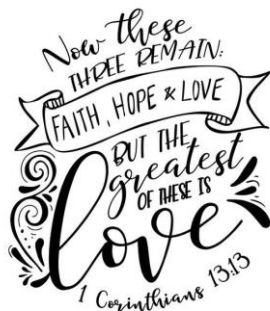 Now these
THREE REMAIN:
FAITH, HOPE & LOVE
BUT THE
greatest
OF THESE IS
love
1 Corinthians 13:13